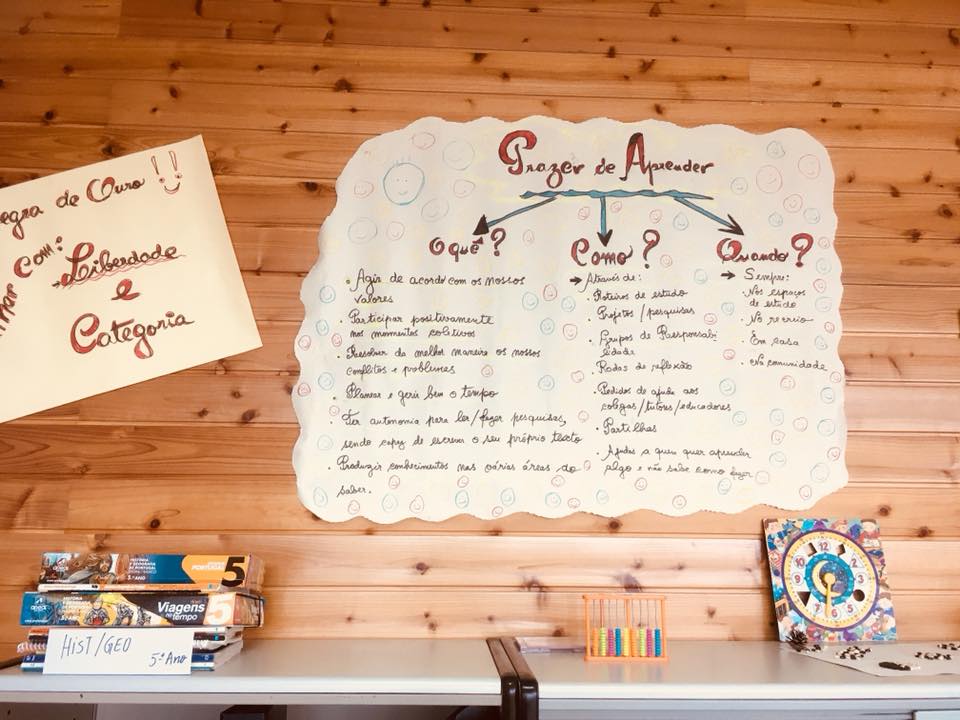 egra de Ouro !!
com:
Liberdade
e
Categoria
Prazer de Aprender
O quê?
• Agir de acordo com os nossos
valores
• Participar positivamente
nos momentos coletivos
• Resolver da melhor maneira os nossos
conflitos e problemas
• Planear e gerir bem o tempo
• Ter autonomia para ler/fazer pesquisas,
sendo capaz de escrever o seu próprio texto
• Produzir conhecimentos nas várias áreas do
saber.
Como?
→ Através de:
• Roteiros de estudo
• Projetos/pesquisas
• Grupos de Responsabi-
lidade
• Rodas de reflexão
• Pedidos de ajuda aos
colegas/tutores/educadores
• Partilhas
• Ajudas a quem quer aprender
algo e não sabe como fazer
Quando?
→ Sempre:
• Nos espaços
de estudo
• No recreio
• Em casa
• Na comunidade
HISTÓRIA
E GEOGRAFIA
DE PORTUGAL
5.º ANO
PORTUGAL
5
Viagens
no tempo
5
HIST/GEO
5º Ano
12
1
2
3
10
9
8